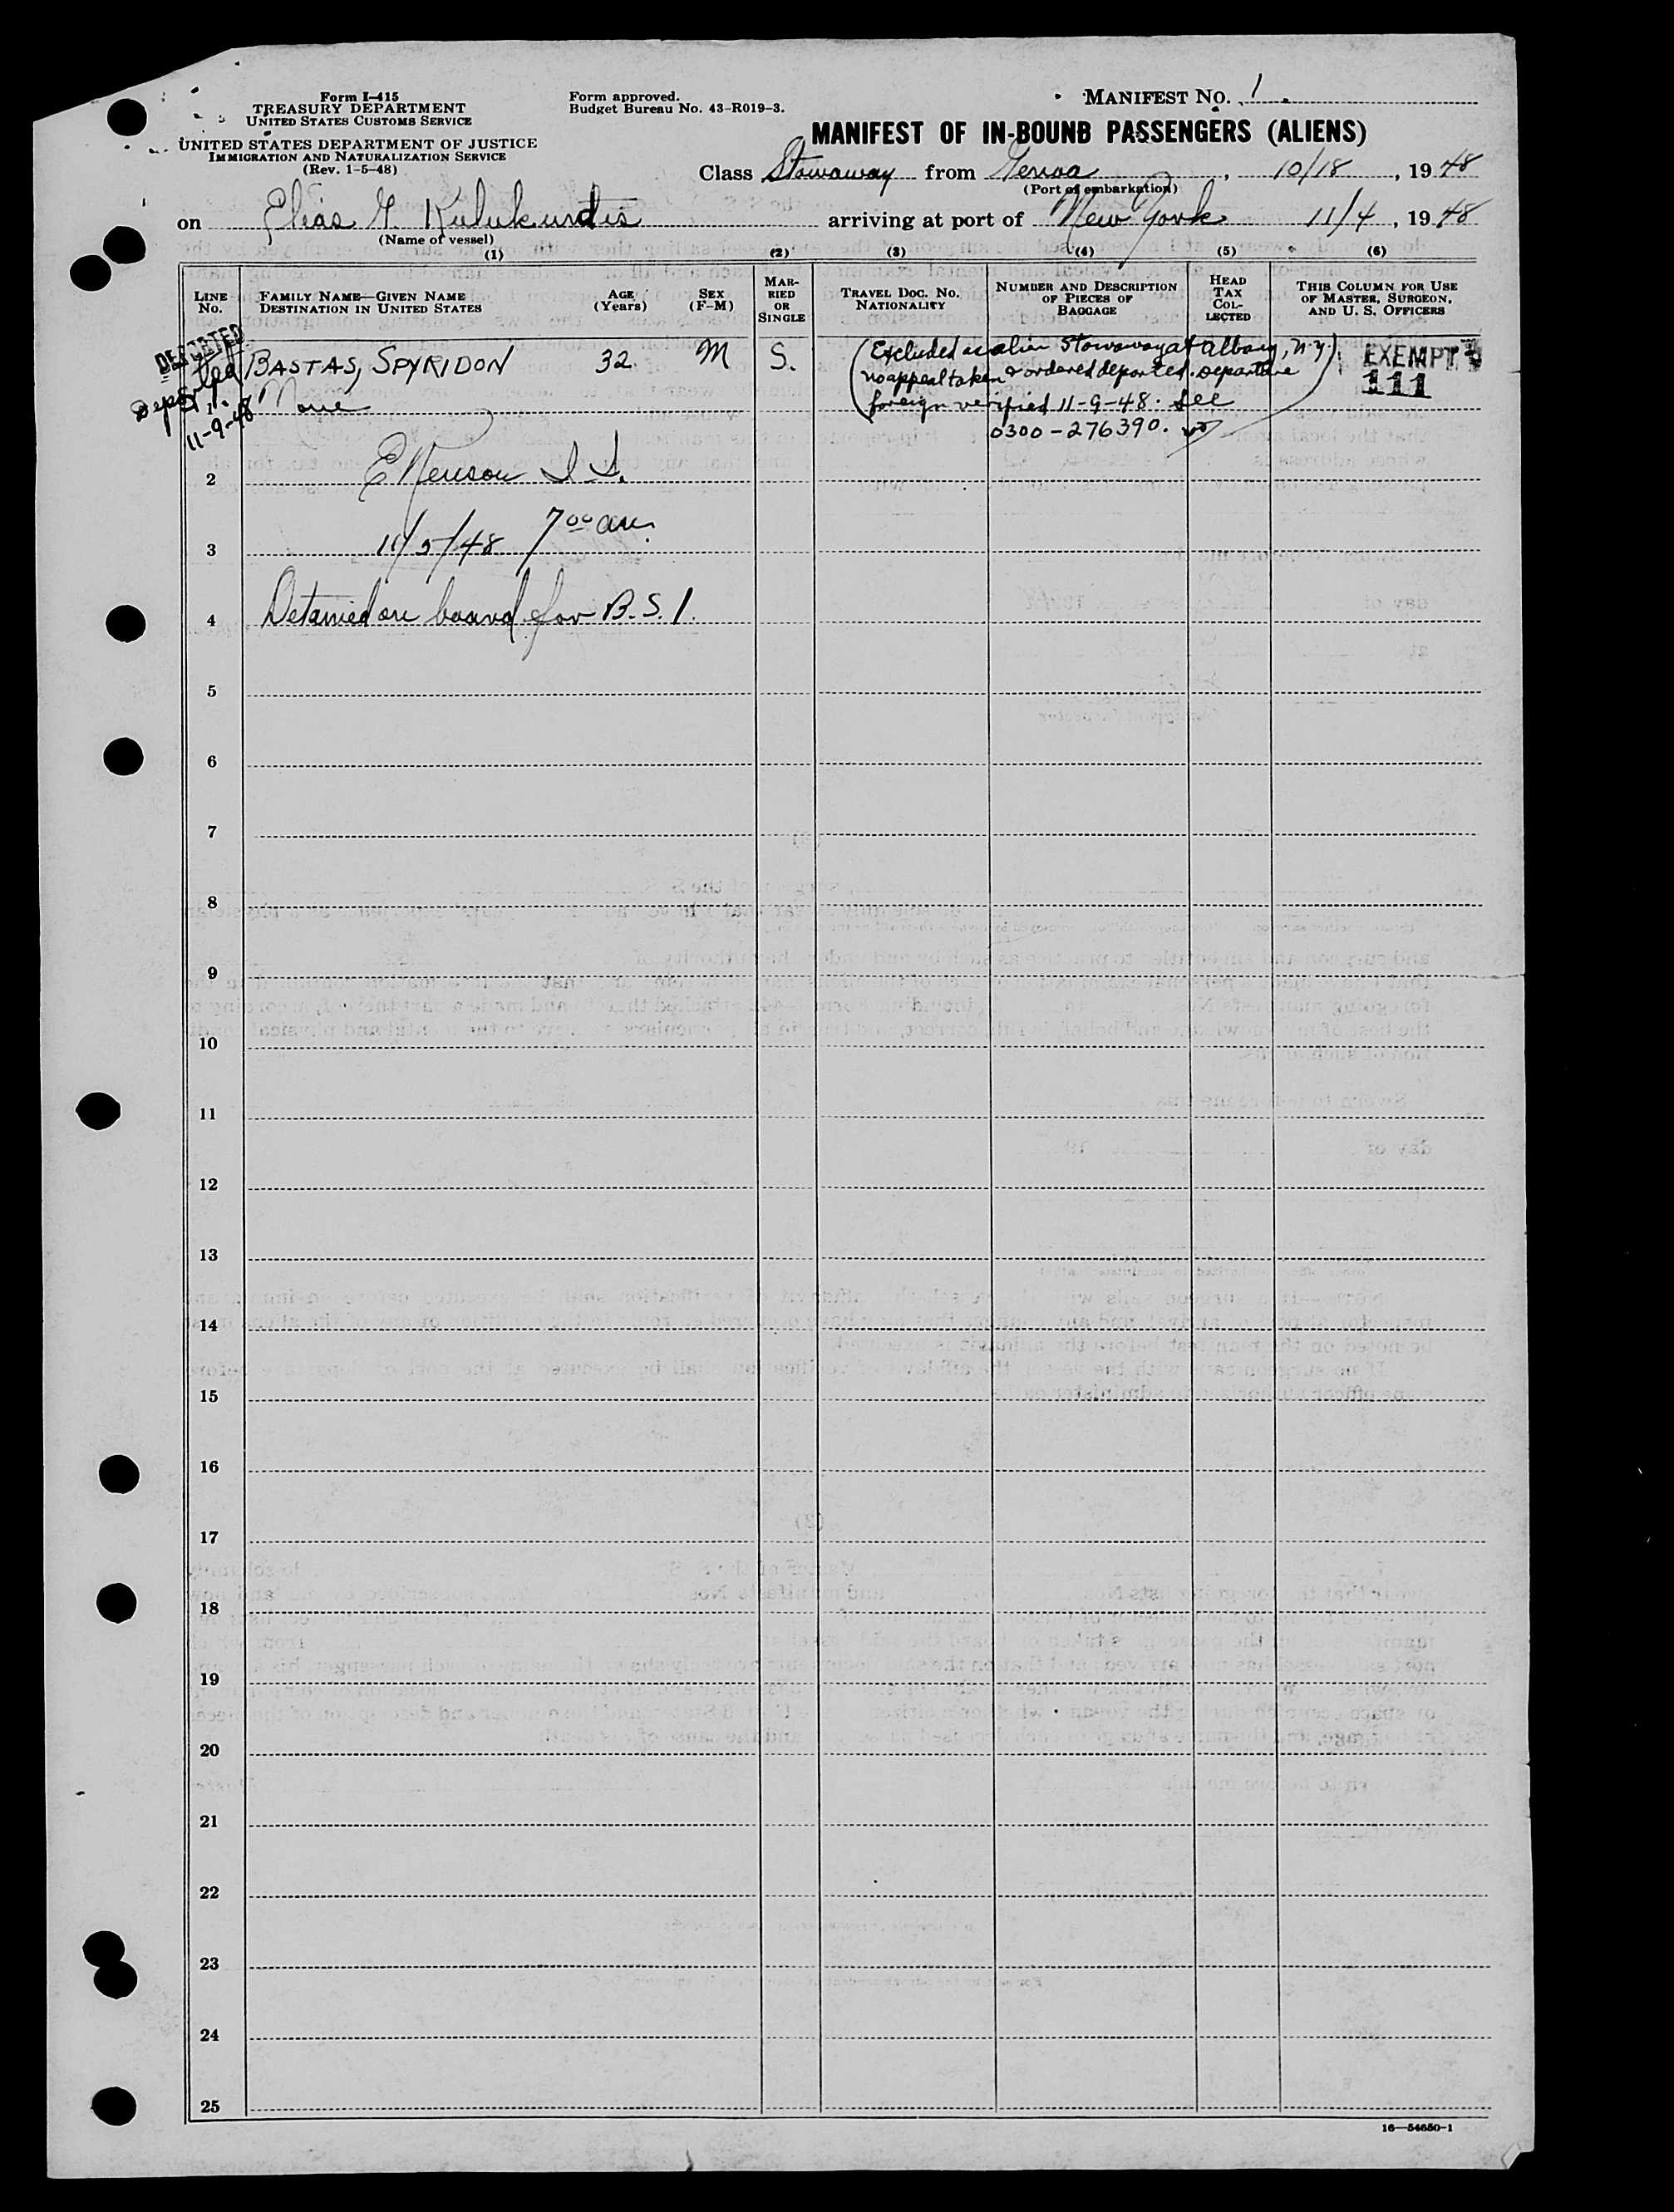 Form I-415
TREASURY DEPARTMENT
UNITED STATES CUSTOMS SERVICE
UNITED STATES DEPARTMENT OF JUSTICE
IMMIGRATION AND NATURALIZATION SERVICE
(Rev. 1-5-48)
Form approved.
Budget Bureau No. 43-R019-3.
MANIFEST NO. 1
MANIFEST OF IN-BOUNB PASSENGERS (ALIENS)
Class Stowaway from Genoa, 10/18, 1948
(Port of embarkation)
on Elias G. Kulukundis arriving at port of New York 11/4, 1948
(Name of vessel)
(1) (2) (3) (4) (5) (6)
LINE NO.
FAMILY NAME—GIVEN NAME
DESTINATION IN UNITED STATES
AGE (Years)
SEX (F-M)
MARRIED OR SINGLE
TRAVEL DOC. NO.
NATIONALITY
NUMBER AND DESCRIPTION OF PIECES OF BAGGAGE
HEAD TAX COLLECTED
THIS COLUMN FOR USE OF MASTER, SURGEON, AND U. S. OFFICERS
Deported
11-9-48
BASTAS, SPYRIDON 32 M S.
None
(Excluded as alien Stowaway at Albany, N.Y.
no appeal taken & ordered deported. Departure
foreign verified 11-9-48. See
0300-276390.
EXEMPT
111
2
3 11/5/48 7⁰⁰ am.
4 Detained on board for B.S.I.
5
6
7
8
9
10
11
12
13
14
15
16
17
18
19
20
21
22
23
24
25
16—54650-1